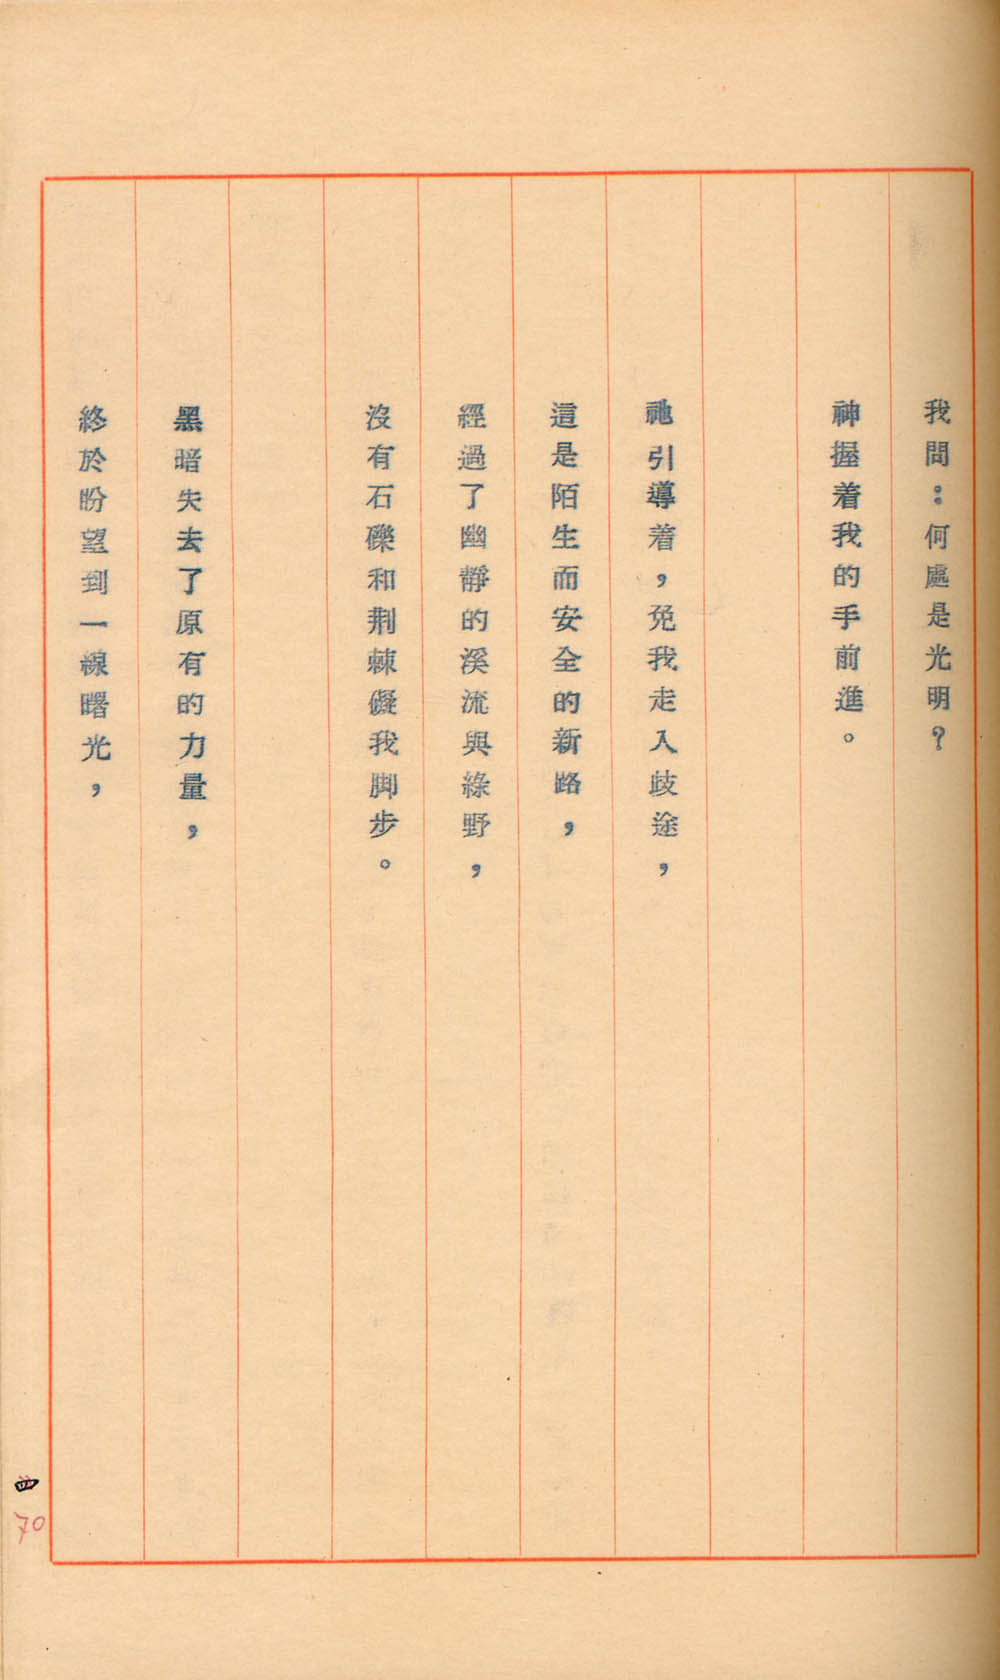 我問：何處是光明？
神握着我的手前進。
祂引導着，免我走入歧途，
這是陌生而安全的新路，
經過了幽靜的溪流與綠野，
沒有石礫和荆棘礙我脚步。
黑暗失去了原有的力量，
終於盼望到一線曙光，
70